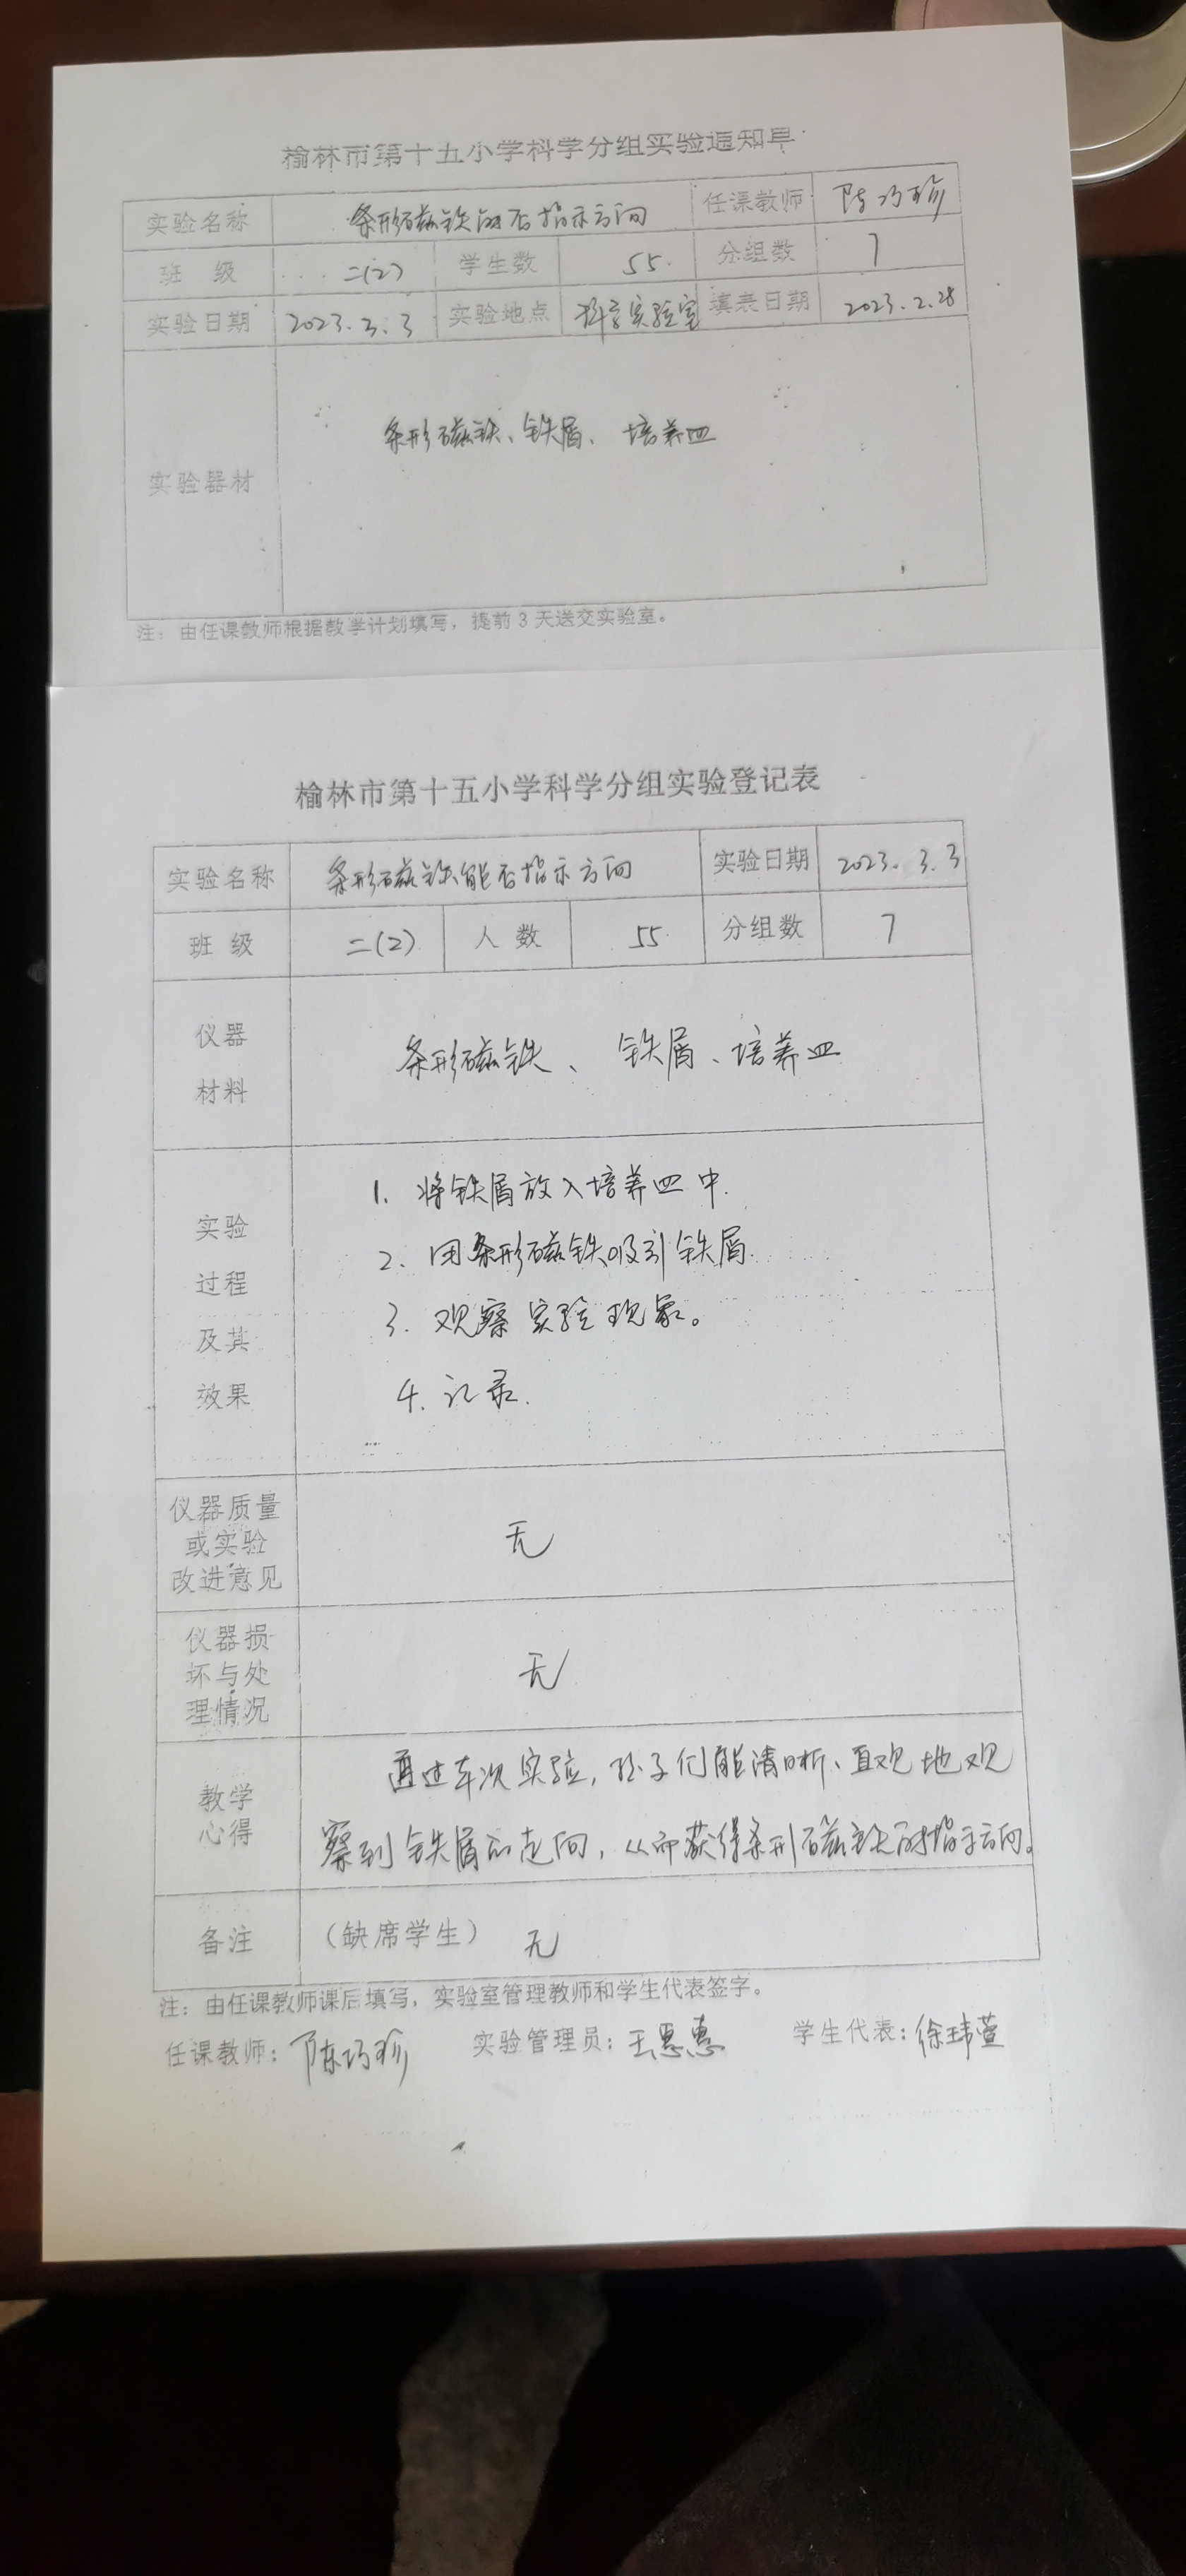 榆林市第十五小学科学分组实验通知单
实验名称 条形磁铁能否指示方向 任课教师 陈巧珍
班 级 二(2) 学生数 55 分组数 7
实验日期 2023.3.3 实验地点 科学实验室 填表日期 2023.2.28
实验器材 条形磁铁、铁屑、培养皿
注：由任课教师根据教学计划填写，提前3天送交实验室。
榆林市第十五小学科学分组实验登记表
实验名称 条形磁铁能否指示方向 实验日期 2023.3.3
班 级 二(2) 人 数 55 分组数 7
仪器
材料
条形磁铁、铁屑、培养皿
实验
过程
及其
效果
1. 将铁屑放入培养皿中.
2. 用条形磁铁吸引铁屑.
3. 观察实验现象。
4. 记录.
仪器质量
或实验
改进意见
无
仪器损
坏与处
理情况
无
教学
心得
通过本次实验,孩子们能清晰、直观地观
察到铁屑的走向,从而获得条形磁铁的指示方向。
备注 （缺席学生） 无
注：由任课教师课后填写，实验室管理教师和学生代表签字。
任课教师：陈巧珍 实验管理员：王恩惠 学生代表：徐玮萱